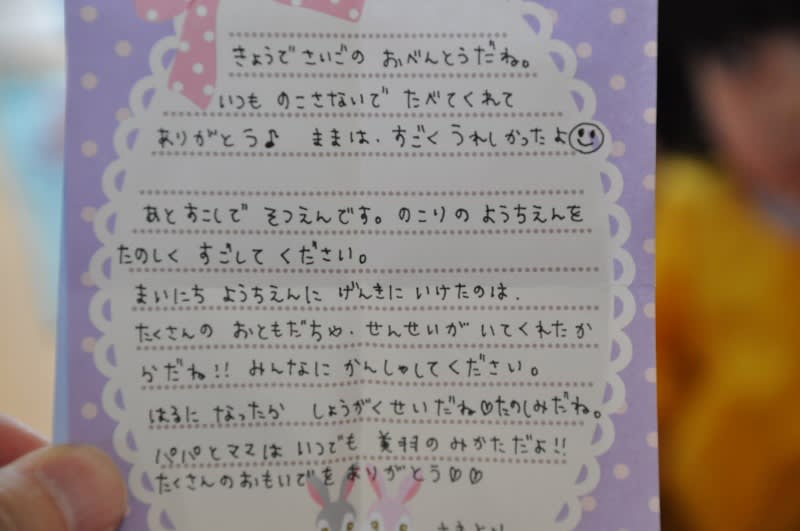 きょうでさいごの おべんとうだね。
いつも のこさないで たべてくれて
ありがとう♪ ままは、すごく うれしかったよ
あとすこしで そつえんです。のこりの ようちえんを
たのしく すごしてください。
まいにち ようちえんに げんきに いけたのは、
たくさんの おともだちや、せんせいが いてくれたか
らだね!! みんなに かんしゃしてください。
はるに なったら しょうがくせいだね♡たのしみだね。
パパとママは いつでも 美羽のみかただよ!!
たくさんのおもいでを ありがとう♡♡